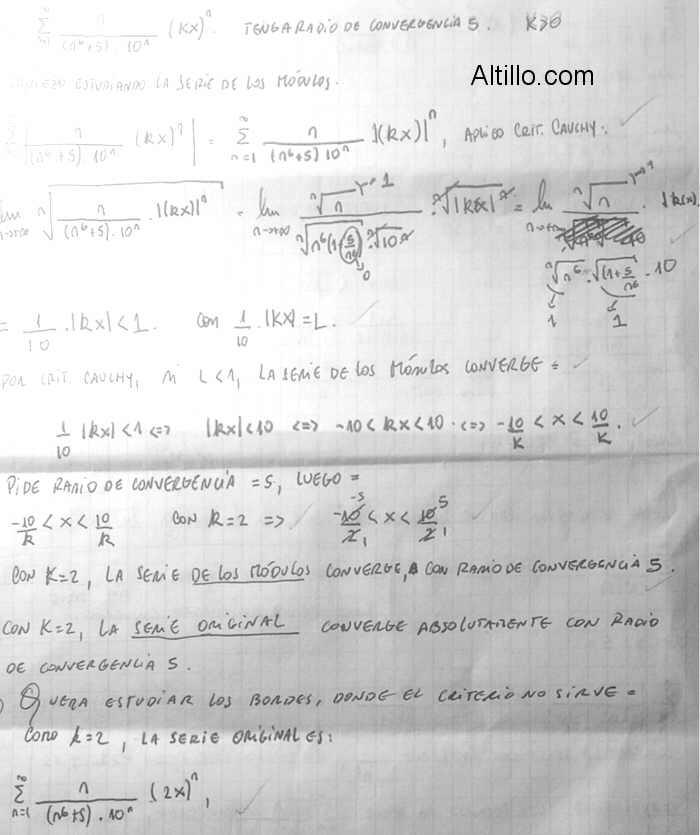 ∑_{n=1}^{∞} n/((n⁶+5)·10ⁿ) (KX)ⁿ. TENGA RADIO DE CONVERGENCIA 5. K>0
Altillo.com
ESTUDIANDO LA SERIE DE LOS MÓDULOS.
∑ |n/((n⁶+5)·10ⁿ) (kx)ⁿ| = ∑_{n=1}^{∞} n/((n⁶+5)10ⁿ) |(kx)|ⁿ, APLICO CRIT. CAUCHY:
lim_{n→+∞} ⁿ√(n/((n⁶+5)·10ⁿ) · |(kx)|ⁿ) = lim_{n→+∞} ⁿ√n →1 / (ⁿ√(n⁶(1+5/n⁶ →0)) · ⁿ√10ⁿ) · ⁿ√|kx|ⁿ = lim_{n→+∞} ⁿ√n →1 / (ⁿ√n⁶ →1 · ⁿ√(1+5/n⁶) →1 · 10) · |kx|
= 1/10 · |kx| < 1. CON 1/10 · |KX| = L.
POR CRIT. CAUCHY, SI L<1, LA SERIE DE LOS MÓDULOS CONVERGE =
1/10 |kx| < 1 <=> |kx| < 10 <=> -10 < kx < 10 · <=> -10/K < x < 10/K.
PIDE RADIO DE CONVERGENCIA = 5, LUEGO =
-10/k < x < 10/k CON k=2 => -10/2 < x < 10/2 -5 5 1 1
CON K=2, LA SERIE DE LOS MÓDULOS CONVERGE, CON RADIO DE CONVERGENCIA 5.
CON K=2, LA SERIE ORIGINAL CONVERGE ABSOLUTAMENTE CON RADIO
DE CONVERGENCIA 5.
QUERA ESTUDIAR LOS BORDES, DONDE EL CRITERIO NO SIRVE =
COMO k=2, LA SERIE ORIGINAL ES:
∑_{n=1}^{∞} n/((n⁶+5)·10ⁿ) (2x)ⁿ,